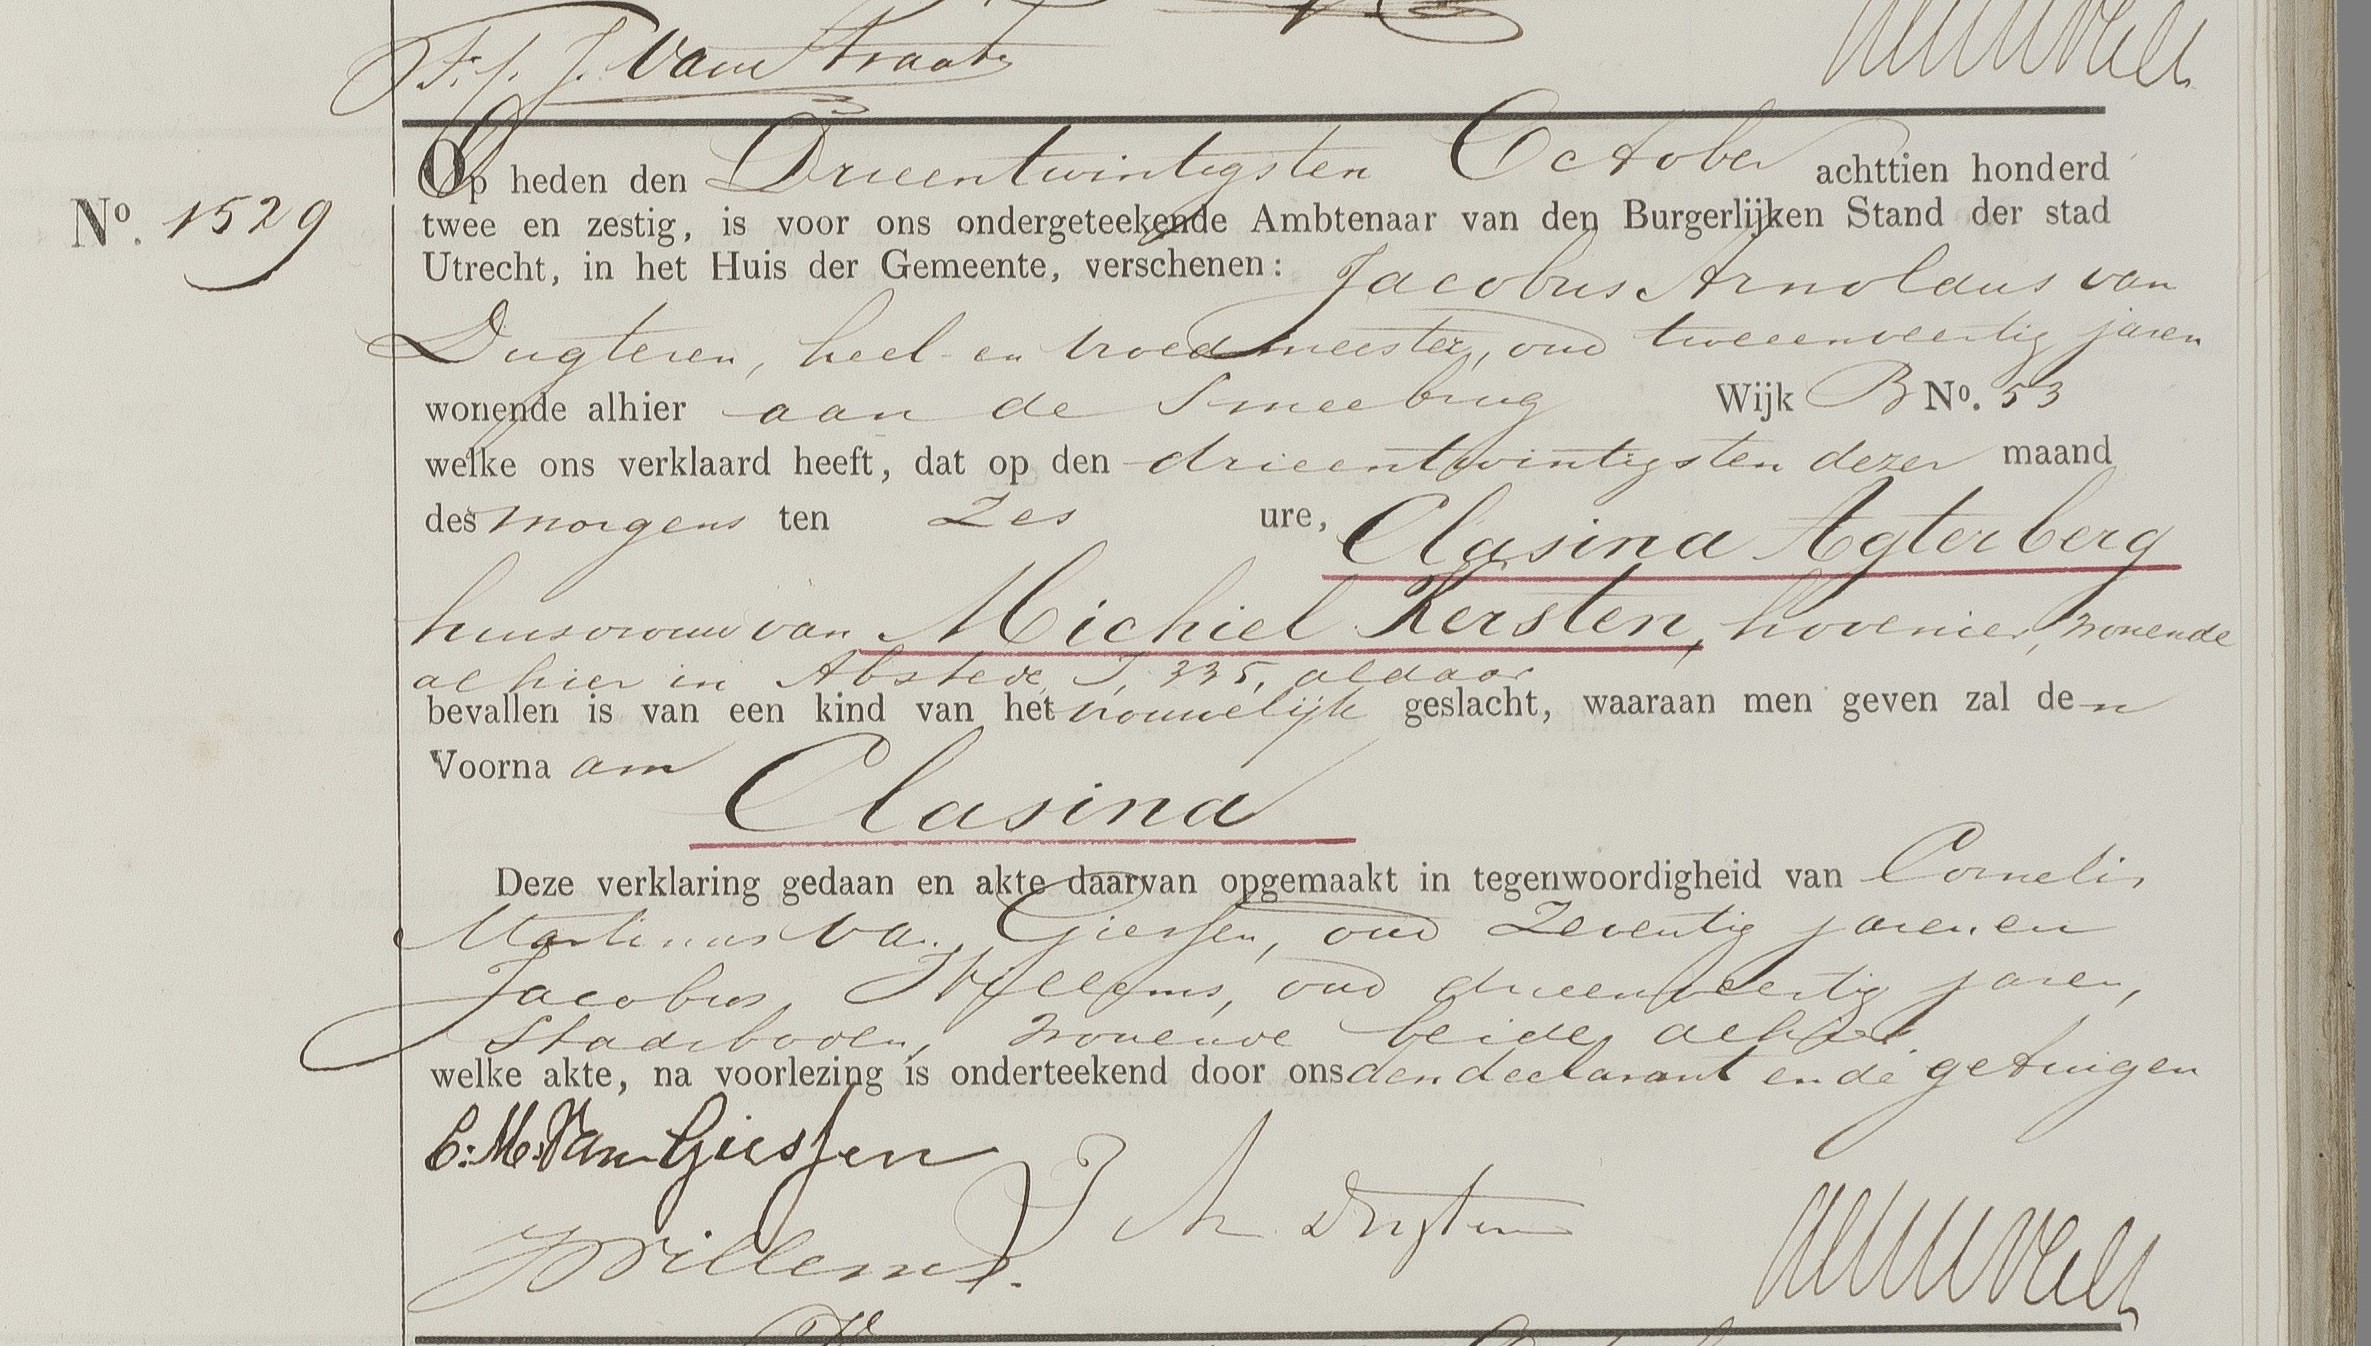 F. J. J. Van Straate
Op heden den Drieentwintigsten October achttien honderd
No. 1529
twee en zestig, is voor ons ondergeteekende Ambtenaar van den Burgerlijken Stand der stad
Utrecht, in het Huis der Gemeente, verschenen: Jacobus Arnoldus van
Dugteren, heel- en vroedmeester, oud tweeenveertig jaren
wonende alhier aan de Smeebrug Wijk B No. 53
welke ons verklaard heeft, dat op den drieentwintigsten dezer maand
des morgens ten Zes ure, Clasina Agterberg
huisvrouw van Michiel Kersten, hovenier, wonende
alhier in Abstede, I, 335, aldaar
bevallen is van een kind van het vrouwelijk geslacht, waaraan men geven zal den
Voornaam
Clasina
Deze verklaring gedaan en akte daarvan opgemaakt in tegenwoordigheid van Cornelis
Martinus van Giessen, oud Zeventig jaren en
Jacobus Willems, oud drieenveertig jaren,
Stadsboden, wonende beide alhier
welke akte, na voorlezing is onderteekend door ons den declarant en de getuigen
C: M: Van Giessen
J A v Dugteren
J Willems.